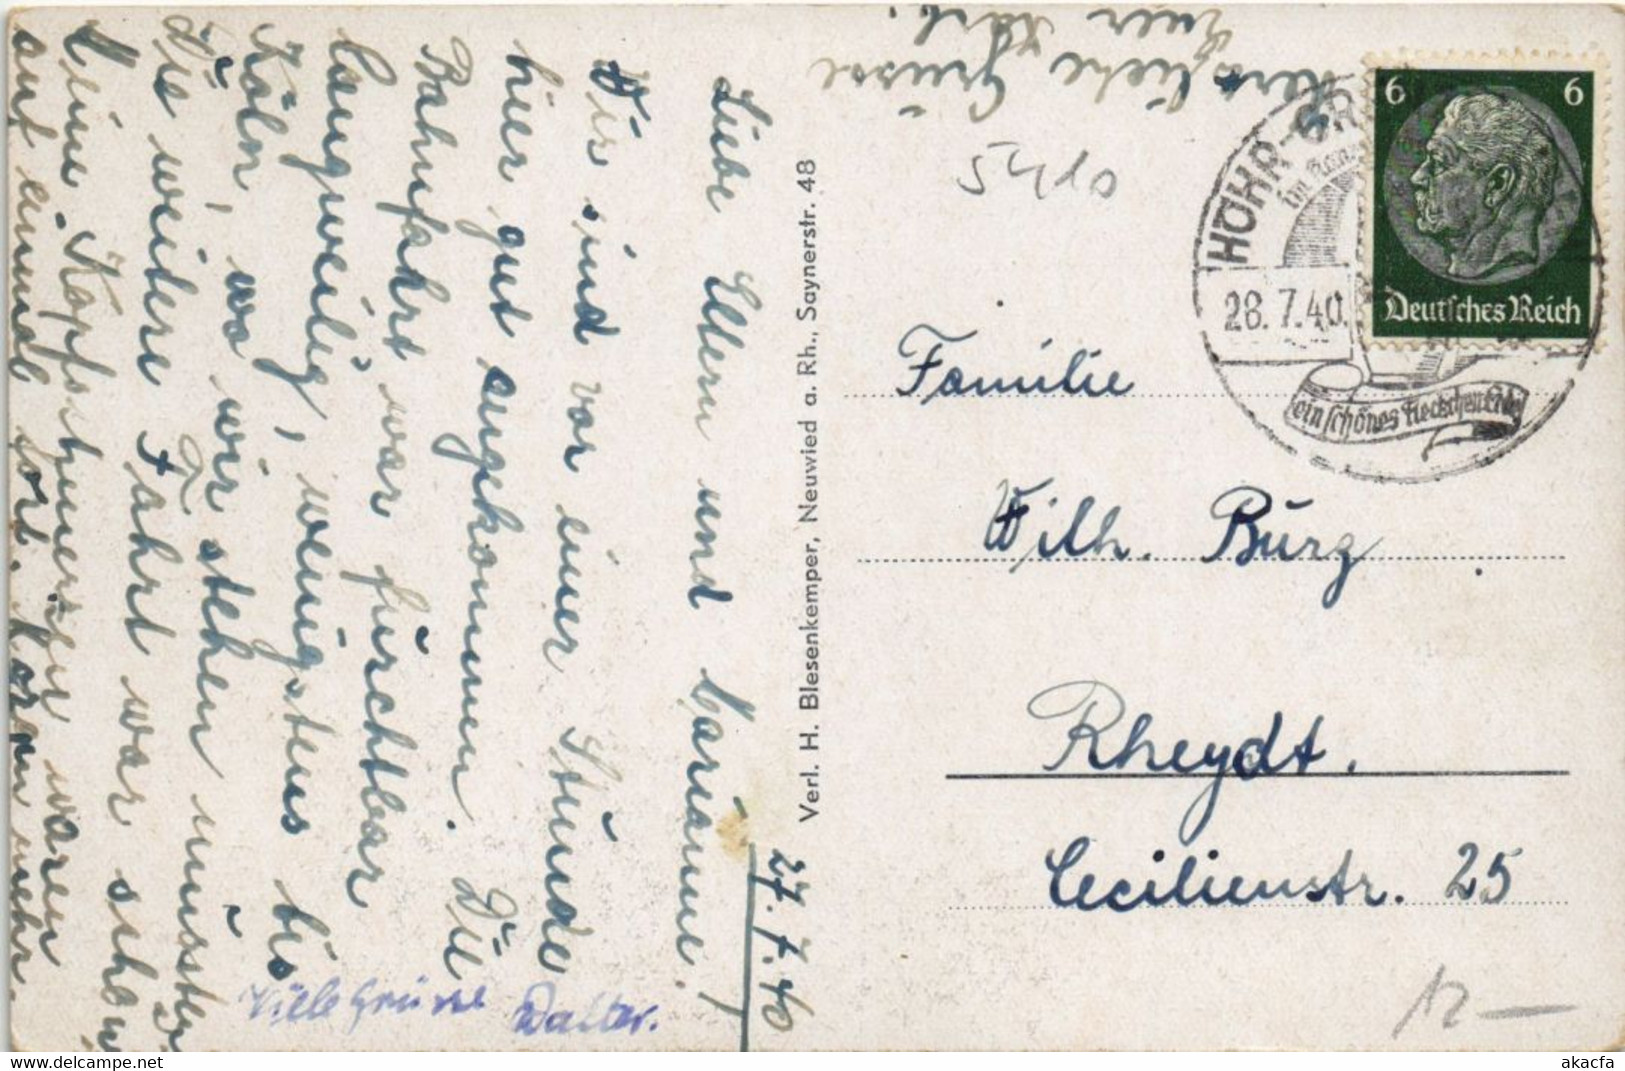 27.7.40
Liebe Eltern und Marianne!
Wir sind vor einer Stunde
hier gut angekommen. Die
Bahnfahrt war furchtbar
langweilig, wenigstens bis
Köln, wo wir stehen mussten.
Die weitere Fahrt war schön
Meine Kopfschmerzen waren
auf einmal fort.
Herzliche Grüsse
Viele Grüsse Walter.
Verl. H. Blesenkemper, Neuwied a. Rh., Saynerstr. 48
HÖHR-GR
28.7.40.
ein schönes Fleckchen Erde
6 6
Deutsches Reich
Familie
Wilh. Burg
Rheydt.
Cecilienstr. 25
12 —
akacfa